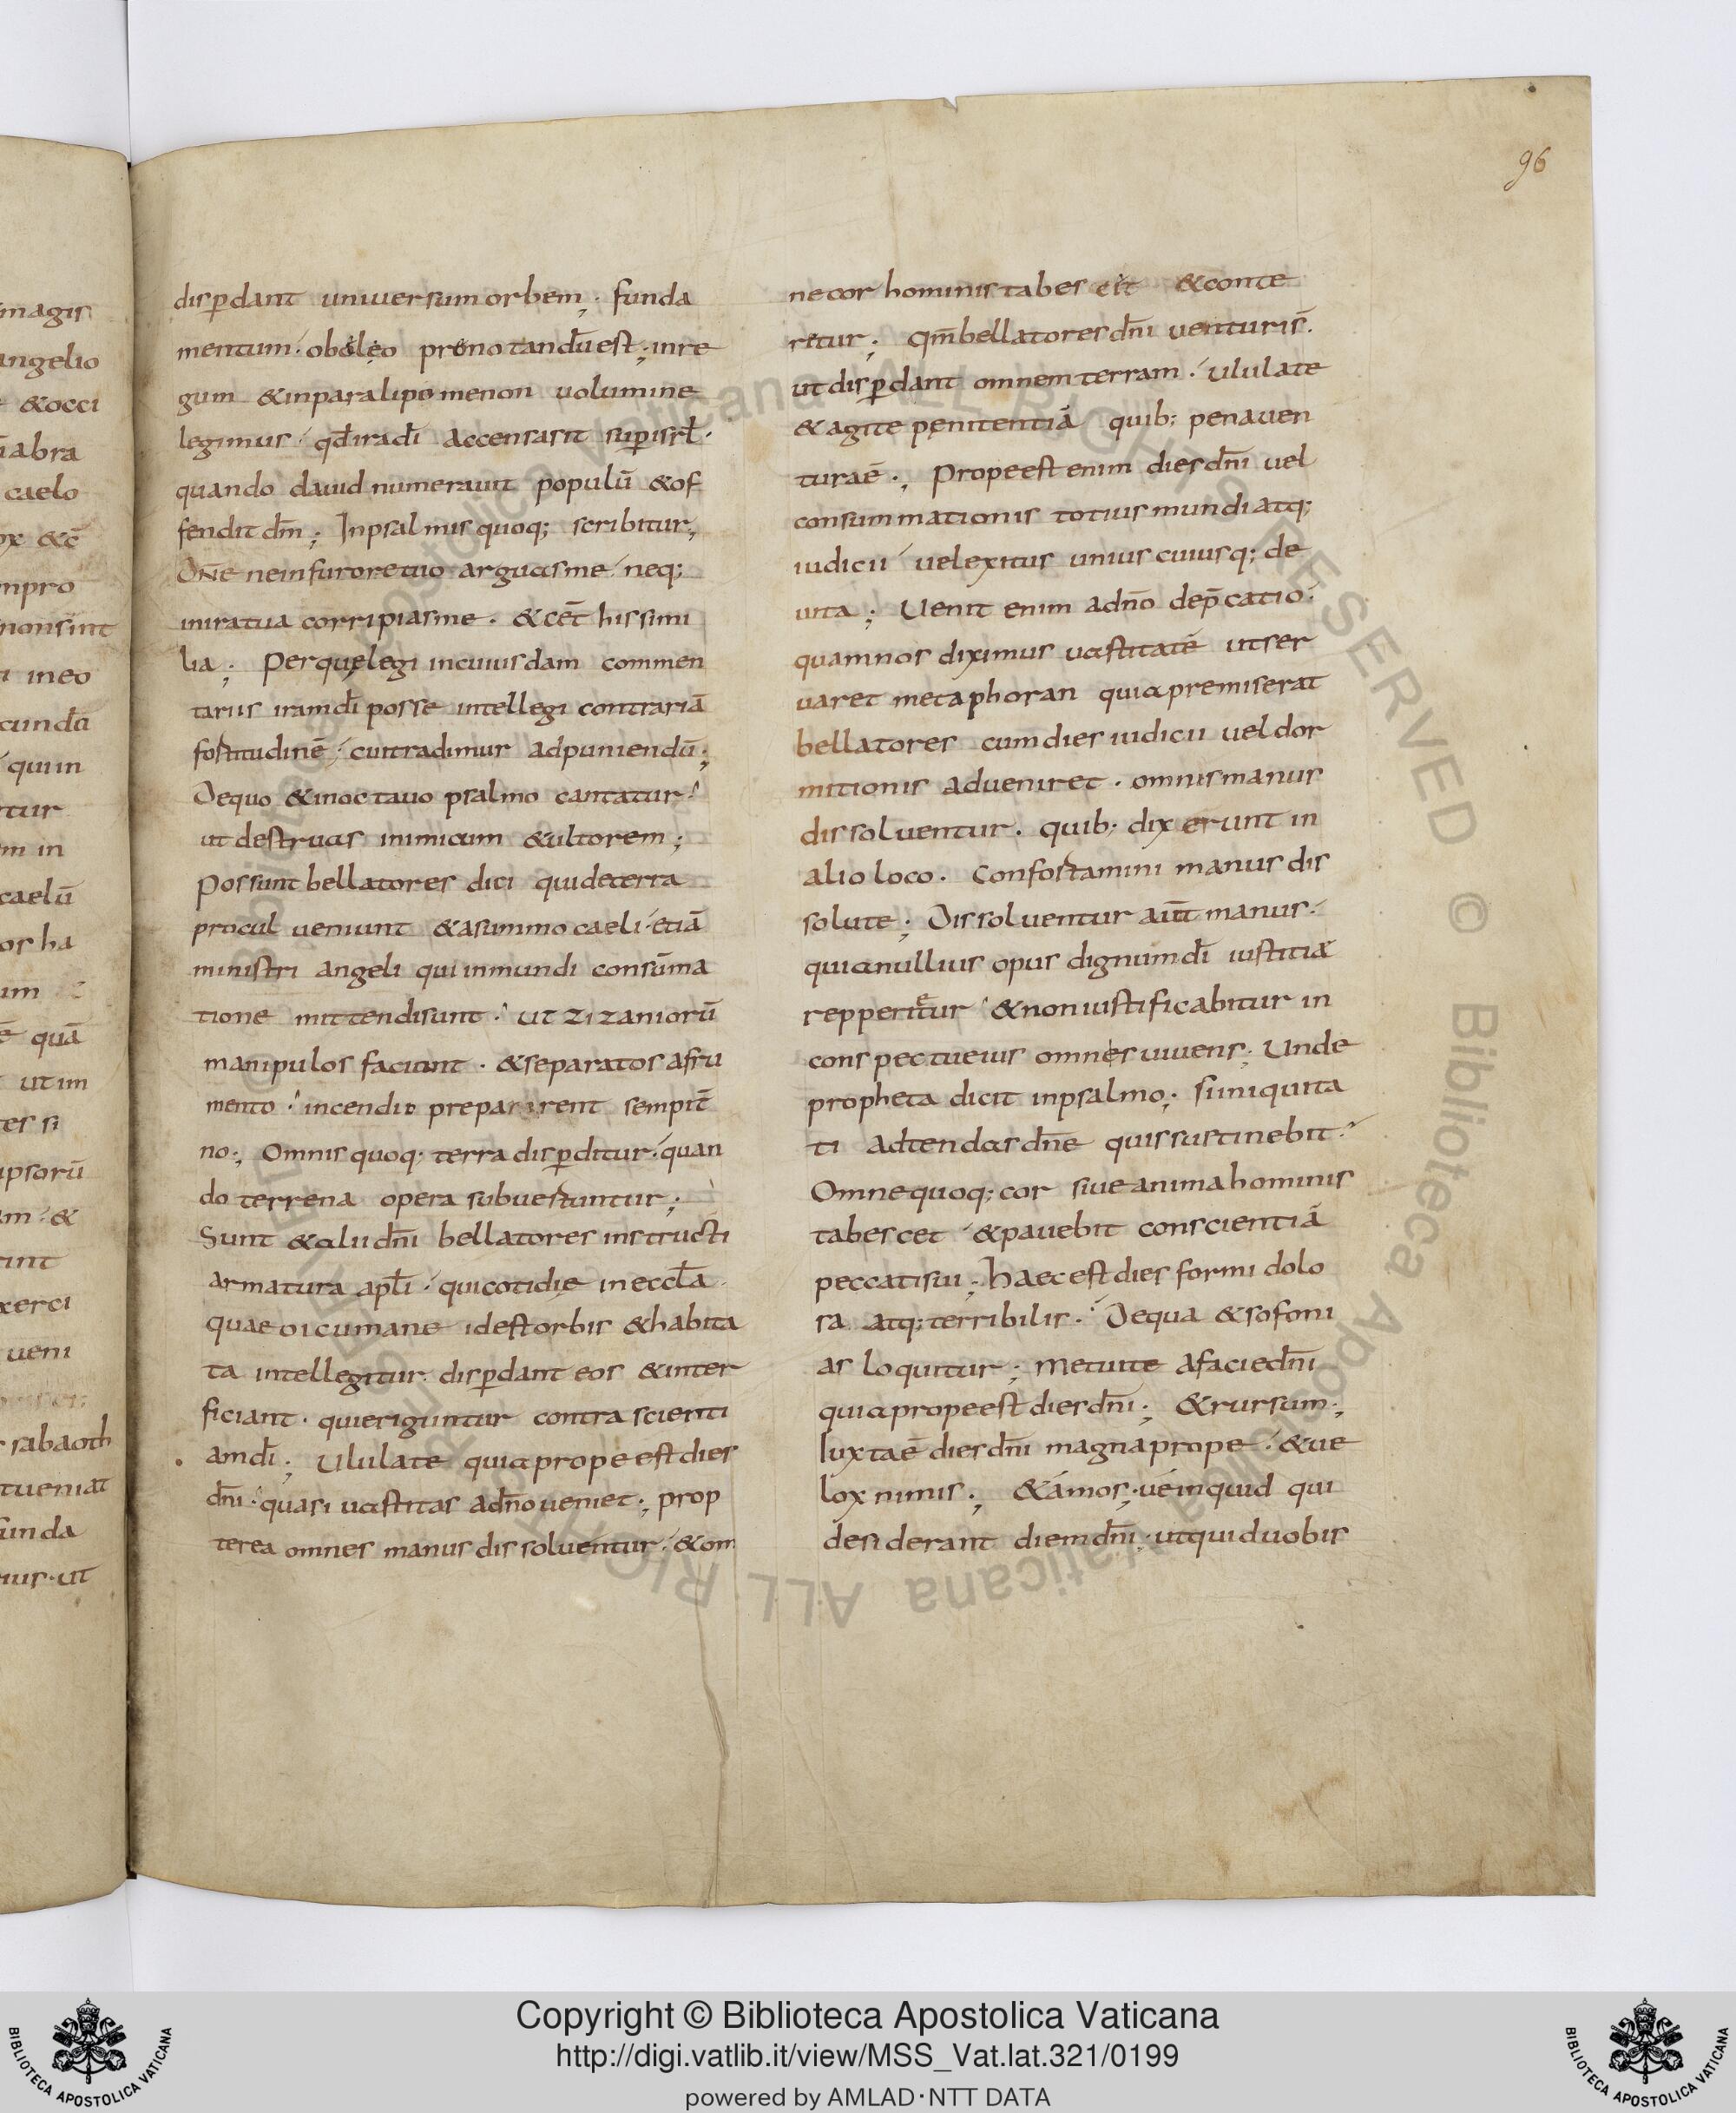 96
magis
angelio
&occi
abra
caelo
&c̄
npro
nonsint
ineo
cunda
quin
tur
m in
caelū
or ha
um
quā
ut im
ter si
ipsorū
am &
rint
xerci
ueni
sabaoth
tueniat
funda
uis· ut
disꝑdant uniuersum orbem; funda
mentum· oboleo prenotandū est; inre
gum &inparalipomenon uolumine
legimus qd̄iradī accensasit suꝑisrł·
quando dauid numerauit populū &of
fendit dm̄; Inpsalmis quoq; scribitur;
Dn̄e neinfuroretuo arguasme neq;
iniratua corripiasme· &cet̄ hissimi
lia; Perquęlegi incuiusdam commen
tariis iramdī posse intellegi contrariā
fortitudinē cuitradimur adpuniendū;
Dequo &inoctauo psalmo cantatur
ut destruas inimicum &ultorem;
Possunt bellatores dici quideterra
procul ueniunt &asummo caeli etiā
ministri angeli quiinmundi consūma
tione mittendisunt· ut zizaniorū
manipulos faciunt· &separatos afru
mento incendio prepararent sempit̄
no; Omnis quoq; terra disꝑditur quan
do terrena opera subuertuntur;
Sunt &alii dn̄i bellatores instructi
armatura apłi quicotidię ineccła
quae oicumane idest orbis &habita
ta intellegitur disꝑdant eos &inter
ficiant· quieriguntur contra scienti
amdī; Ululate quiaprope est dies
dn̄i quasi uastitas adn̄o ueniet; prop
terea omnes manus dissoluentur &om
necor hominis tabescet &conte
retur; Qm̄ bellatores dn̄i uenturis̄·
ut disꝑdant omnem terram· ululate
&agite pęnitentiā quib; penauen
turaē; Propeest enim dies dn̄i uel
consummationis totius mundi atq;
iudicii uelexitus unius cuiusq; de
uita; Uenit enim adn̄o dep̄catio
quamnos diximus uastitatē utser
uaret metaphoran quiapremiserat
bellatores cumdies iudicii ueldor
mitionis adueniret· omnismanus
dissoluentur· quib; dixerunt in
alio loco· Confortamini manus dis
solute; Dissoluentur aut̄ manus
quianullius opus dignumdī iustitiæ
repperitur &noniustificabitur in
conspectueius omnes uiuens; Unde
propheta dicit inpsalmo; siniquita
ti adtendas dn̄e quissustinebit
Omnequoq; cor siue anima hominis
tabescet &pauebit conscientiā
peccatisui; Haec est dies formidolo
sa atq; terribilis· Dequa &sofoni
as loquitur; Metuite afaciedn̄i
quiaprope est dies dn̄i; &rursum;
Iuxtaē dies dn̄i magna prope· &ue
lox nimis; &ámos; uéinquid qui
desiderant diemdn̄i; utquiduobis
Copyright © Biblioteca Apostolica Vaticana
http://digi.vatlib.it/view/MSS_Vat.lat.321/0199
powered by AMLAD·NTT DATA
BIBLIOTECA APOSTOLICA VATICANA
BIBLIOTECA APOSTOLICA VATICANA